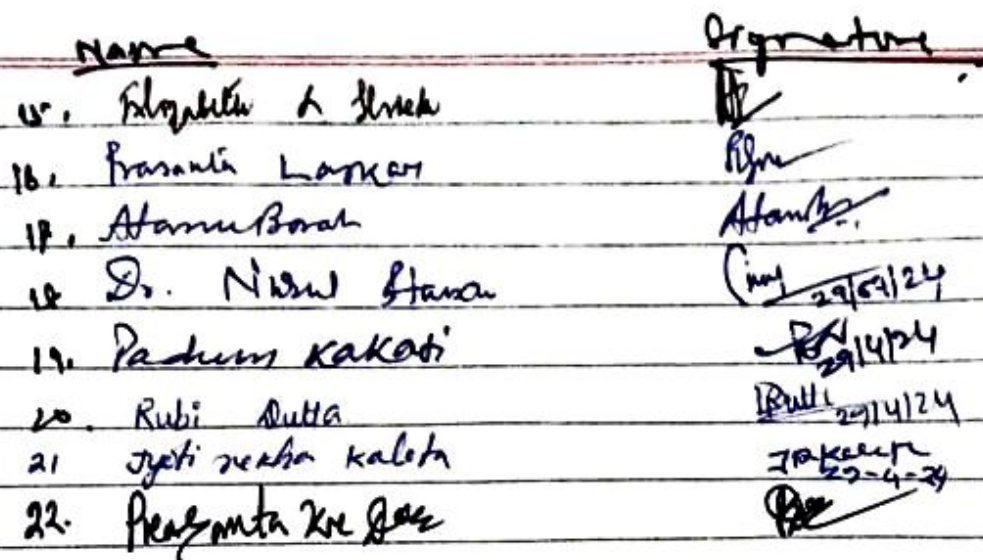 Name Signature
15. Elizabeth
16. Prasanta Laskar
17. Atanu Borah Atanu
18 Dr. Nurul 29/04/24
19. Padum Kakati 29/4/24
20. Rubi Dutta RDutta 29/4/24
21 Jyoti rekha Kalita JRKalita 29-4-24
22. Prasanta Kr Das